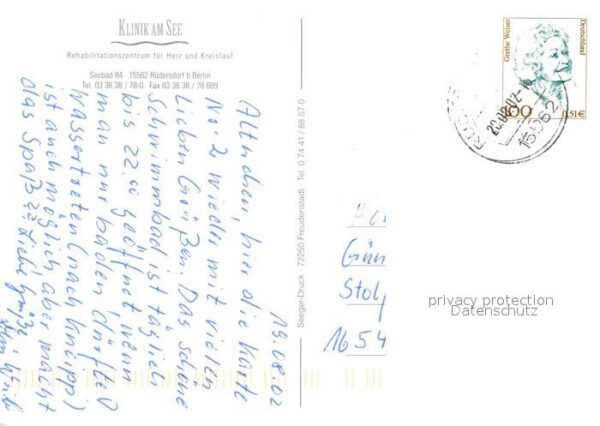 KLINIK AM SEE
Rehabilitationszentrum für Herz und Kreislauf
Seebad 84 15562 Rüdersdorf b Berlin
Tel 03 36 38 / 78-0 Fax 03 36 38 / 78 609
19.08.02
Altchen, hier die Karte
No: 2 wieder mit vielen
Lieben Grüßen. Das schöne
Schwimmbad ist täglich
bis 22.00 geöffnet, wenn
man nur baden dürfte
Wassertreten (nach Kneipp)
ist auch möglich aber macht
das Spaß?? Liebe Grüße,
Seeger-Druck 72250 Freudenstadt Tel 0 74 41 / 88 57-0
Grethe Weiser
Deutschland
100
0,51€
20.08.02
15562
Gün
Stolp
1654
privacy protection
Datenschutz